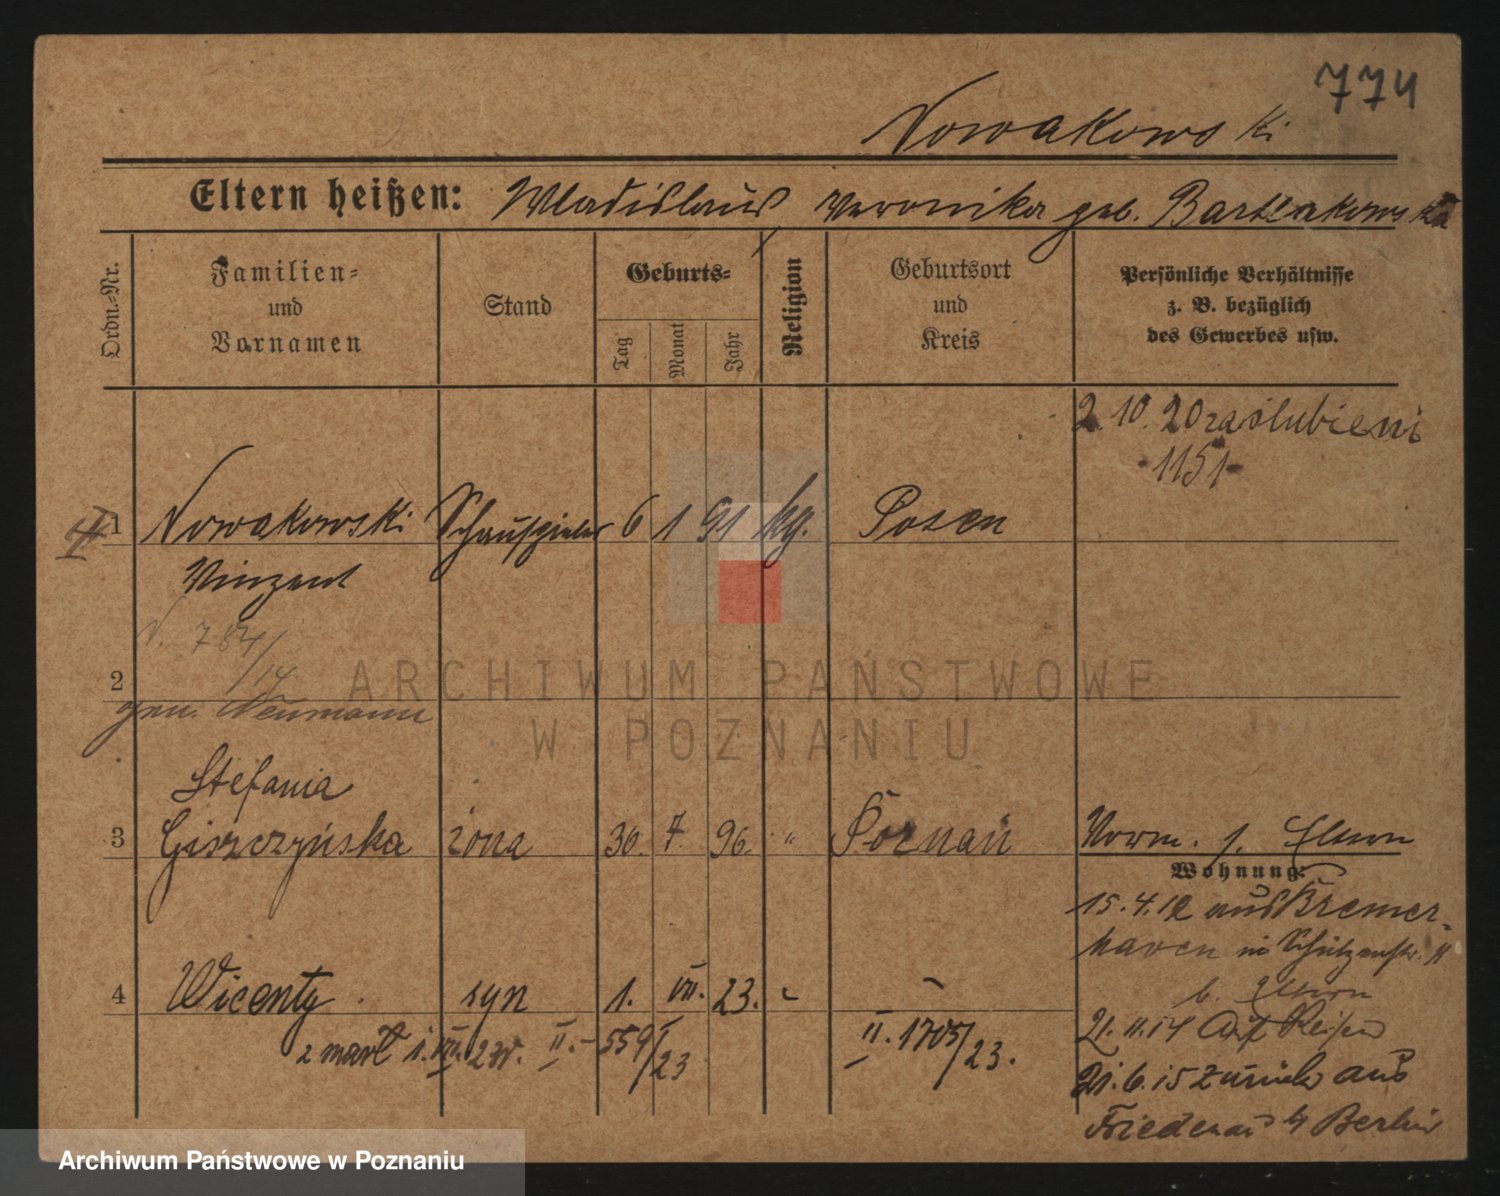 774
Nowakowski
Eltern heißen: Wladislaus Veronika geb. Bartlakowska
Ordn.-Nr.
Familien-
und
Vornamen
Stand
Geburts-
Tag
Monat
Jahr
Religion
Geburtsort
und
Kreis
Persönliche Verhältnisse
z. B. bezüglich
des Gewerbes usw.
2.10.20 zaślubieni
1151
1 Nowakowski Schauspieler 6 1 91 kg. Posen
Vinzent
2
gen. Neumann
Stefania
3 Giszczyńska żona 30. 7. 96. " Poznań
Vorm. s. Eltern
Wohnung:
15.4.12 aus Bremer-
haven in Schützenstr. 11
b. Eltern
4 Wicenty syn 1. VII. 23.
zmarł 1.VIII.23r. II.-559/23 II.1705/23.
21.11.14 Auf Reisen
21.6.15 zurück aus
Friedenau b/ Berlin
ARCHIWUM PAŃSTWOWE
W POZNANIU
Archiwum Państwowe w Poznaniu